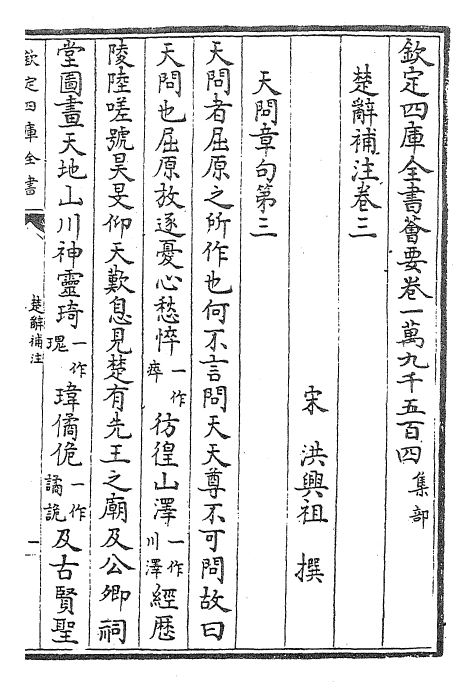 欽定四庫全書薈要卷一萬九千五百四 集部
楚辭補注卷三
宋 洪興祖 撰
天問章句第三
天問者屈原之所作也何不言問天天尊不可問故曰
天問也屈原放逐憂心愁悴一作瘁彷徨山澤一作川澤經歷
陵陸嗟號昊旻仰天歎息見楚有先王之廟及公卿祠
堂圖畫天地山川神靈琦一作瑰瑋僪佹一作譎詭及古賢聖
欽定四庫全書
楚辭補注
一